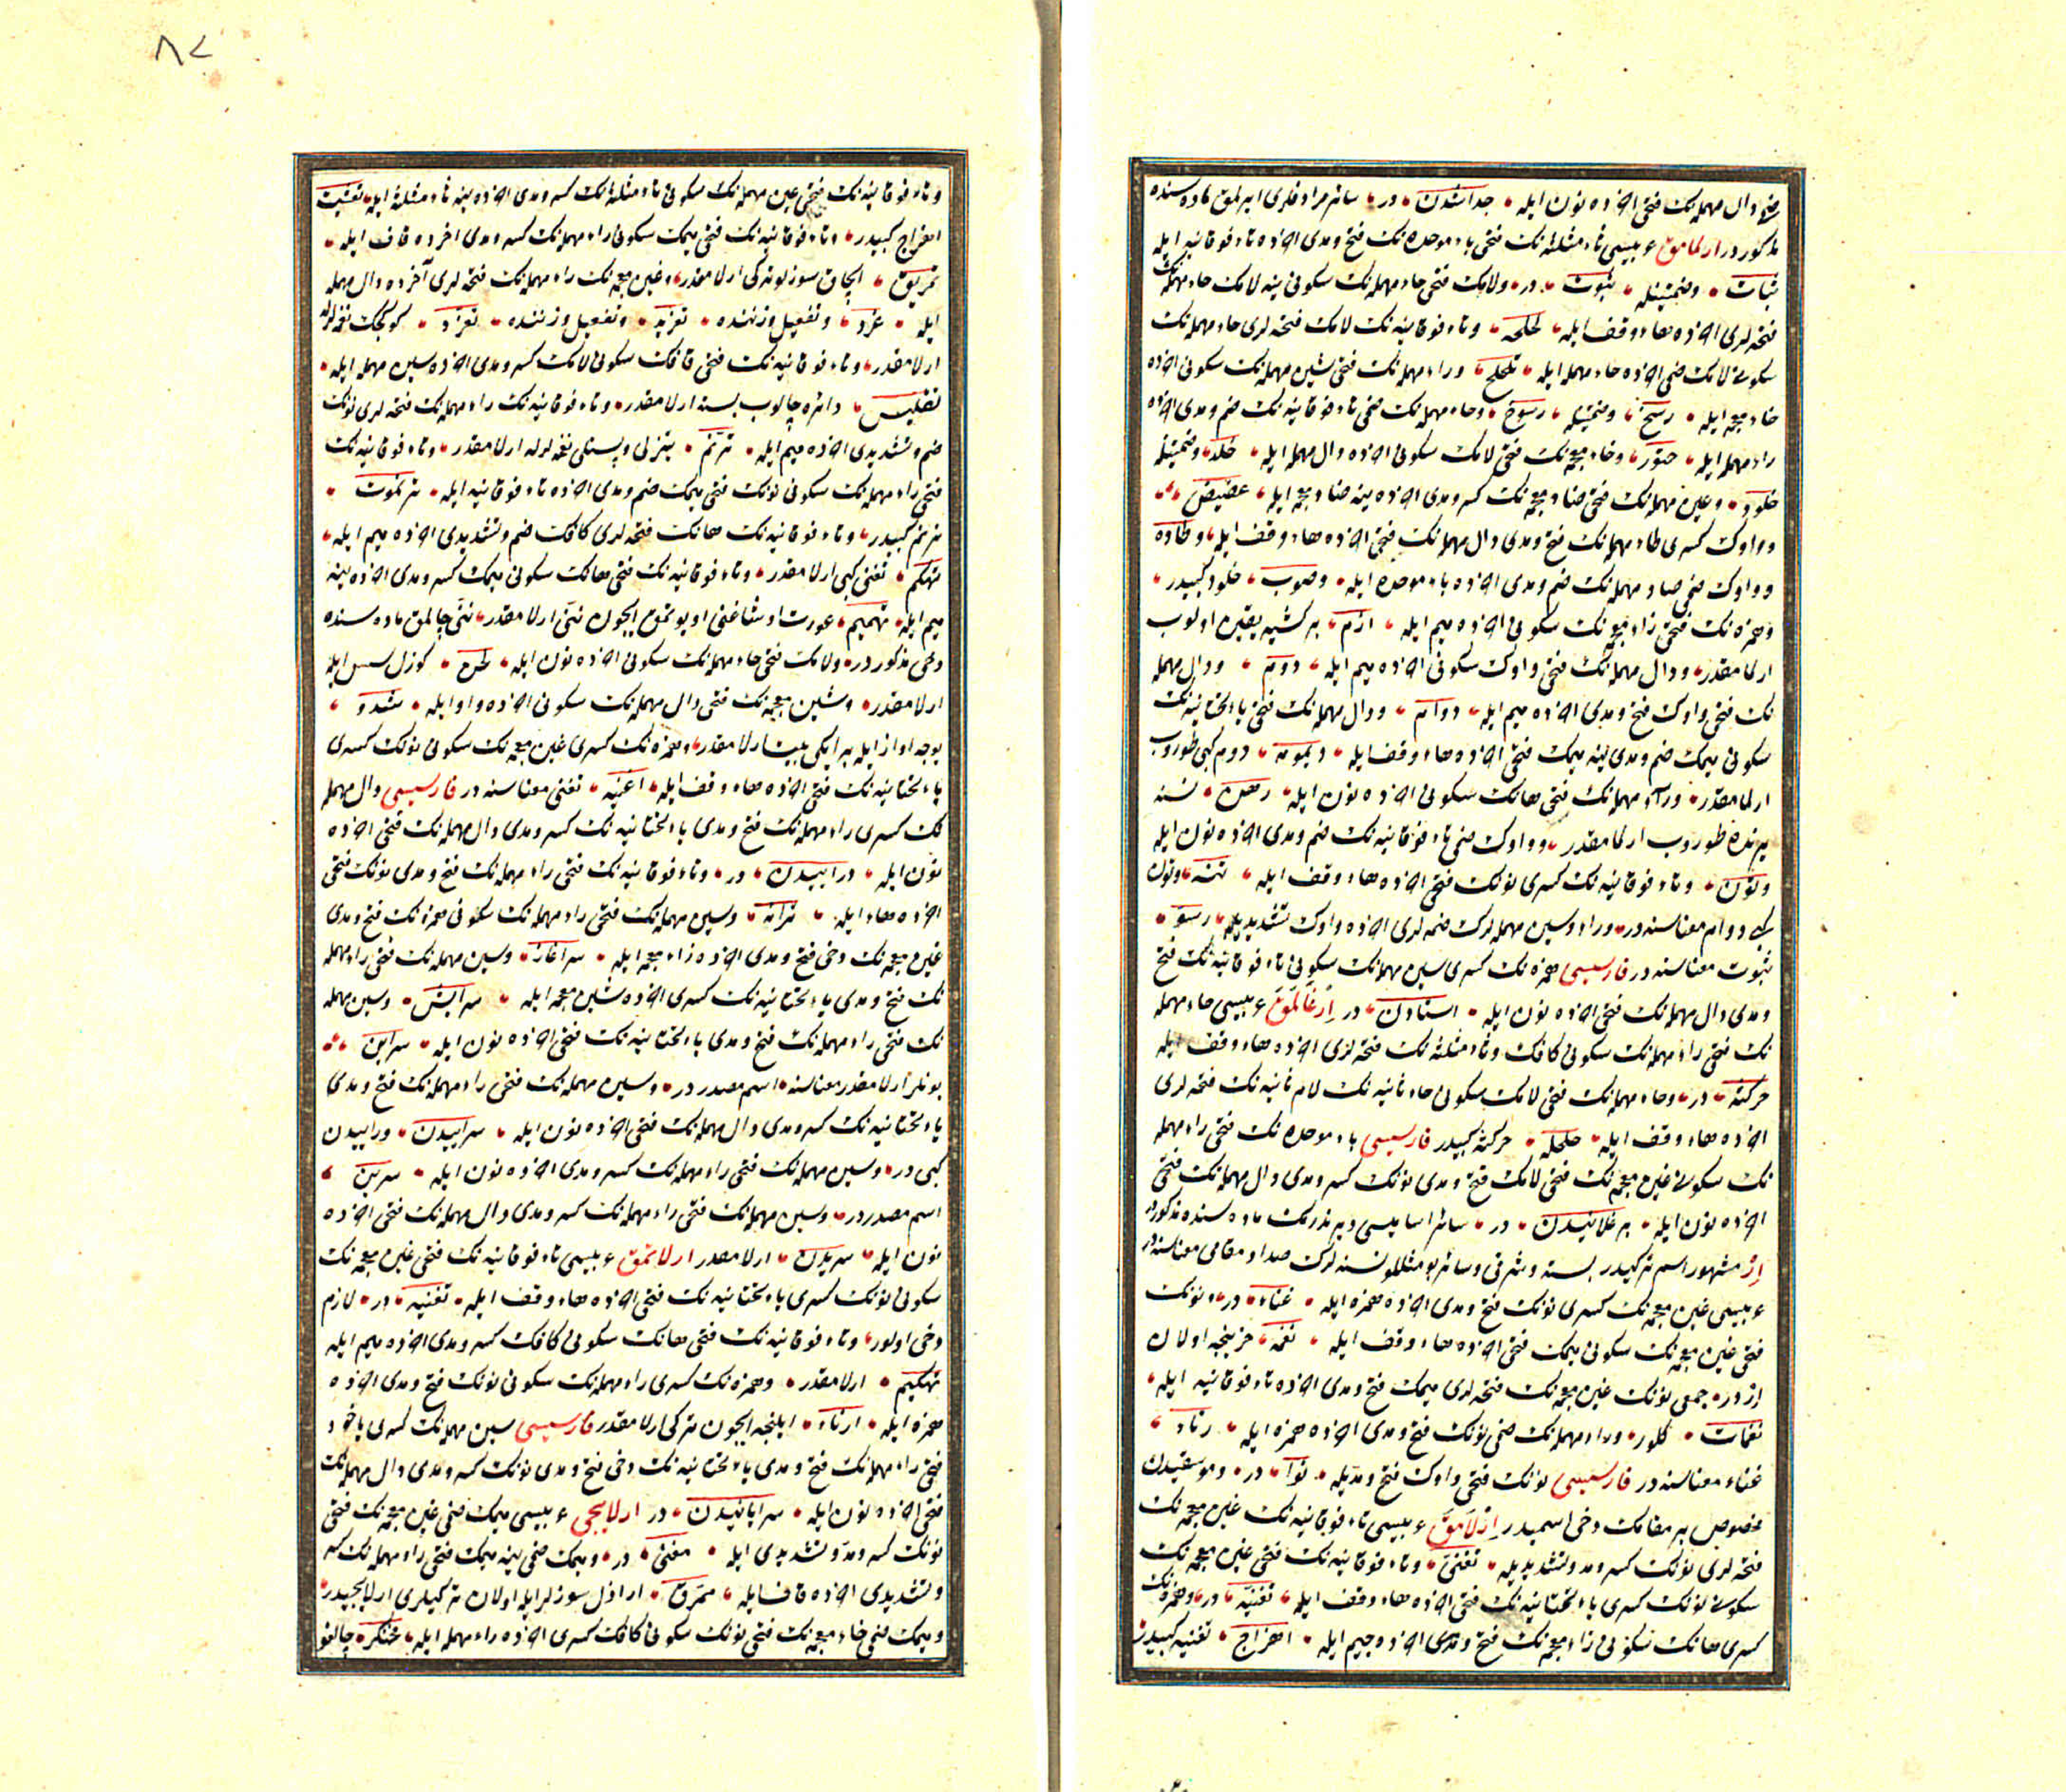 ضم و دال مهمله نك فتحى اخرده نون ايله جدا شدن در سائر مرادفلرى ايرلمق ماده سنده
مذكور در ارلمامق عربيسى ثاء مثلثه نك فتحى باء موحده نك فتح و مدى اخرده تاء فوقانيه ايله
ثبات و ضمتينله ثبوت در و لامك فتحى حاء مهمله نك سكونى ينه لامك حاء مهمله نك
فتحه لرى اخرده هاء وقف ايله لحلحه و تاء فوقانيه نك لامك فتحه لرى حاء مهمله نك
سكونى لامك ضمى اخرده حاء مهمله ايله تلحلح و راء مهمله نك فتحى سين مهمله نك سكونى اخرده
خاء معجمه ايله رسخ و ضمتينله رسوخ و حاء مهمله نك ضمى تاء فوقانيه نك ضم و مدى اخرده
راء مهمله ايله حتور و خاء معجمه نك فتحى لامك سكونى اخرده دال مهمله ايله خلد و ضمتينله
خلود و عين مهمله نك فتحى ضاد معجمه نك كسر و مدى اخرده ينه ضاد معجمه ايله عضيض
و واوك كسرى طاء مهمله نك فتح و مدى دال مهمله نك فتحى اخرده هاء وقف ايله وطاده
و واوك ضمى صاد مهمله نك ضم و مدى اخرده باء موحده ايله وصوب خلود كبيدر
و همزه نك فتحى زاء معجمه نك سكونى اخرده ميم ايله ازم بر كشيه يقين اولوب
ارلمامقدر و دال مهمله نك فتحى واوك سكونى اخرده ميم ايله دوم و دال مهمله
نك فتحى واوك فتح و مدى اخرده ميم ايله دوام و دال مهمله نك فتحى ياء تحتانيه نك
سكونى ميمك ضم و مدى ينه ميمك فتحى اخرده هاء وقف ايله ديمومه دوم كبى طوروب
ارلمامقدر و راء مهمله نك فتحى هانك سكونى اخرده نون ايله رهن نسنه
يرنده طوروب ارلمامقدر و واوك ضمى تاء فوقانيه نك ضم و مدى اخرده نون ايله
وتون و تاء فوقانيه نك كسرى نونك فتحى اخرده هاء وقف ايله تنه وتون
كبى دوام معناسنه در و راء و سين مهمله لرك ضمه لرى اخرده واوك تشديديله رسو
ثبوت معناسنه در فارسيسى همزه نك كسرى سين مهمله نك سكونى تاء فوقانيه نك فتح
و مدى دال مهمله نك فتحى اخرده نون ايله استادن در ارغالمق عربيسى حاء مهمله
نك فتحى راء مهمله نك سكونى كافك و ثاء مثلثه نك فتحه لرى اخرده هاء وقف ايله
حركثه در و حاء مهمله نك فتحى لامك سكونى حاء ثانيه نك لام ثانيه نك فتحه لرى
اخرده هاء وقف ايله حلحله حركثه كبيدر فارسيسى باء موحده نك فتحى راء مهمله
نك سكونى غين معجمه نك فتحى لامك فتح و مدى نونك كسر و مدى دال مهمله نك فتحى
اخرده نون ايله برغلانيدن در سائر اساميسى دپرندرمك ماده سنده مذكور در
از مشهور اسم تركيدر بسته و شرقى و سائر بو مثللو نسنه لرك صدا و مقامى معناسنه در
عربيسى غين معجمه نك كسرى نونك فتح و مدى اخرده همزه ايله غناء در و نونك
فتحى غين معجمه نك سكونى ميمك فتحى اخرده هاء وقف ايله نغمه حزينجه اولان
ازدر جمعى نونك غين معجمه نك فتحه لرى ميمك فتح و مدى اخرده تاء فوقانيه ايله
نغمات كلور و راء مهمله نك ضمى نونك فتح و مدى اخرده همزه ايله رناء
غناء معناسنه در فارسيسى نونك فتحى واوك فتح و مديله نوا در و موسقيدن
مخصوص بر مقامك دخى اسميدر ازلامق عربيسى تاء فوقانيه نك غين معجمه نك
فتحه لرى نونك كسر و مد و تشديديله تغنى و تاء فوقانيه نك فتحى غين معجمه نك
سكونى نونك كسرى ياء تحتانيه نك فتحى اخرده هاء وقف ايله تغنيه در و همزه نك
كسرى هانك سكونى زاء معجمه نك فتح و مدى اخرده جيم ايله اهزاج تغنيه كبيدر
٨٢
و تاء فوقانيه نك فتحى عين مهمله نك سكونى ثاء مثلثه نك كسر و مدى اخرده ينه ثاء مثلثه ايله
اهزاج كبيدر و تاء فوقانيه نك فتحى ميمك سكونى راء مهمله نك كسر و مدى اخرده قاف ايله
تمريق الچاق سوزلو تركى ارلامقدر و غين معجمه نك راء مهمله نك فتحه لرى آخرده دال مهمله
ايله غرد و تفعيل وزننده تغريد و تفعل وزننده تغرد كوكجك نغمه لرله
ارلامقدر و تاء فوقانيه نك فتحى قافك سكونى لامك كسر و مدى اخرده سين مهمله ايله
تقليس دائره چالوب بسته ارلامقدر و تاء فوقانيه نك راء مهمله نك فتحه لرى نونك
ضم و تشديدى اخرده ميم ايله ترنم تيزلى و پستلى نغمه لرله ارلامقدر و تاء فوقانيه نك
فتحى راء مهمله نك سكونى نونك فتحى ميمك ضم و مدى اخرده تاء فوقانيه ايله ترنموت
ترنم كبيدر و تاء فوقانيه نك هانك فتحه لرى كافك ضم و تشديدى اخرده ميم ايله
تهكم تغنى كبى ارلامقدر و تاء فوقانيه نك فتحى هانك سكونى ميمك كسر و مدى اخرده ينه
ميم ايله تهميم عورت اوشاغنى اويوتمق ايچون ننى ارلامقدر ننى چالمق ماده سنده
دخى مذكور در و لامك فتحى حاء مهمله نك سكونى اخرده نون ايله لحن كوزل سس ايله
ارلامقدر و شين معجمه نك فتحى دال مهمله نك سكونى اخرده واو ايله شدو
يوجه اواز ايله بر ايكى بيت ارلامقدر و همزه نك كسرى غين معجمه نك سكونى نونك كسرى
ياء تحتانيه نك فتحى اخرده هاء وقف ايله اغنيه تغنى معناسنه در فارسيسى دال مهمله
نك كسرى راء مهمله نك فتح و مدى ياء تحتانيه نك كسر و مدى دال مهمله نك فتحى اخرده
نون ايله دراييدن در و تاء فوقانيه نك فتحى راء مهمله نك فتح و مدى نونك فتحى
اخرده هاء ايله ترانه و سين مهمله نك فتحى راء مهمله نك سكونى همزه نك فتح و مدى
غين معجمه نك دخى فتح و مدى اخرده زاء معجمه ايله سراغاز و سين مهمله نك فتحى راء مهمله
نك فتح و مدى ياء تحتانيه نك كسرى اخرده شين معجمه ايله سرايش و سين مهمله
نك فتحى راء مهمله نك فتح و مدى ياء تحتانيه نك فتحى اخرده نون ايله سراين
بونلر ارلامقدر معناسنه اسم مصدر در و سين مهمله نك فتحى راء مهمله نك فتح و مدى
ياء تحتانيه نك كسر و مدى دال مهمله نك فتحى اخرده نون ايله سراييدن دراييدن
كبى در و سين مهمله نك فتحى راء مهمله نك كسر و مدى اخرده نون ايله سرين
اسم مصدر در و سين مهمله نك فتحى راء مهمله نك كسر و مدى دال مهمله نك فتحى اخرده
نون ايله سريدن ارلامقدر ارلاتمق عربيسى تاء فوقانيه نك فتحى غين معجمه نك
سكونى نونك كسرى ياء تحتانيه نك فتحى اخرده هاء وقف ايله تغنيه در لازم
دخى اولور و تاء فوقانيه نك فتحى هانك سكونى كافك كسر و مدى اخرده ميم ايله
تهكيم ارلامقدر و همزه نك كسرى راء مهمله نك سكونى نونك فتح و مدى اخرده
همزه ايله ارناء ايلنجه ايچون تركى ارلامقدر فارسيسى سين مهمله نك كسرى ياخود
فتحى راء مهمله نك فتح و مدى ياء تحتانيه نك دخى فتح و مدى نونك كسر و مدى دال مهمله نك
فتحى اخرده نون ايله سرايانيدن در ارلايجى عربيسى ميمك ضمى غين معجمه نك فتحى
نونك كسر و مد و تشديدى ايله مغنى در و ميمك ضمى ينه ميمك فتحى راء مهمله نك كسر
و تشديدى اخرده قاف ايله ممرق اراذل سوزلر ايله اولان تركيلرى ارلايجيدر
و ميمك ضمى خاء معجمه نك فتحى نونك سكونى كافك كسرى اخرده راء مهمله ايله مخنكر چالغو